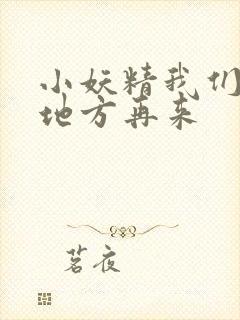 小妖精我们
地方再来
茗夜